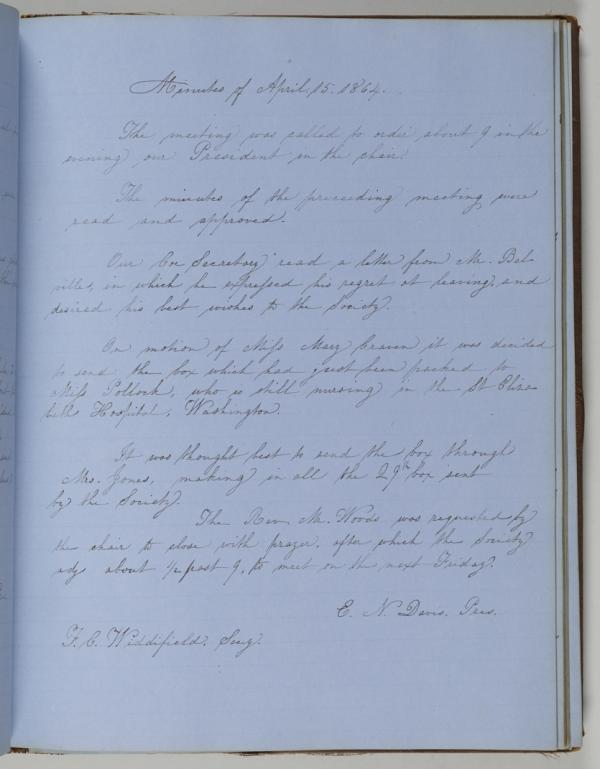 Minutes of April, 15. 1864.
The meeting was called to order about 9 in the
evening, our President in the chair.
The minutes of the preceeding meeting were
read and approved.
Our Cor Secretary read a letter from Mr. Bel-
ville, in which he expressed his regret at leaving, and
desired his best wishes to the Society.
On motion of Miss Mary Craven it was decided
to send the box which had just been packed to
Miss Pollock, who is still nursing in the St Eliza-
beth Hospital, Washington.
It was thought best to send the box through
Mrs. Jones, making in all the 29th box sent
by the Society.
The Rev. Mr. Woods was requested by
the chair to close with prayer, after which the Society
adj about 1/4 past 9, to meet on the next Friday.
E. N. Davis. Pres.
F. C. Widdifield. Secy.